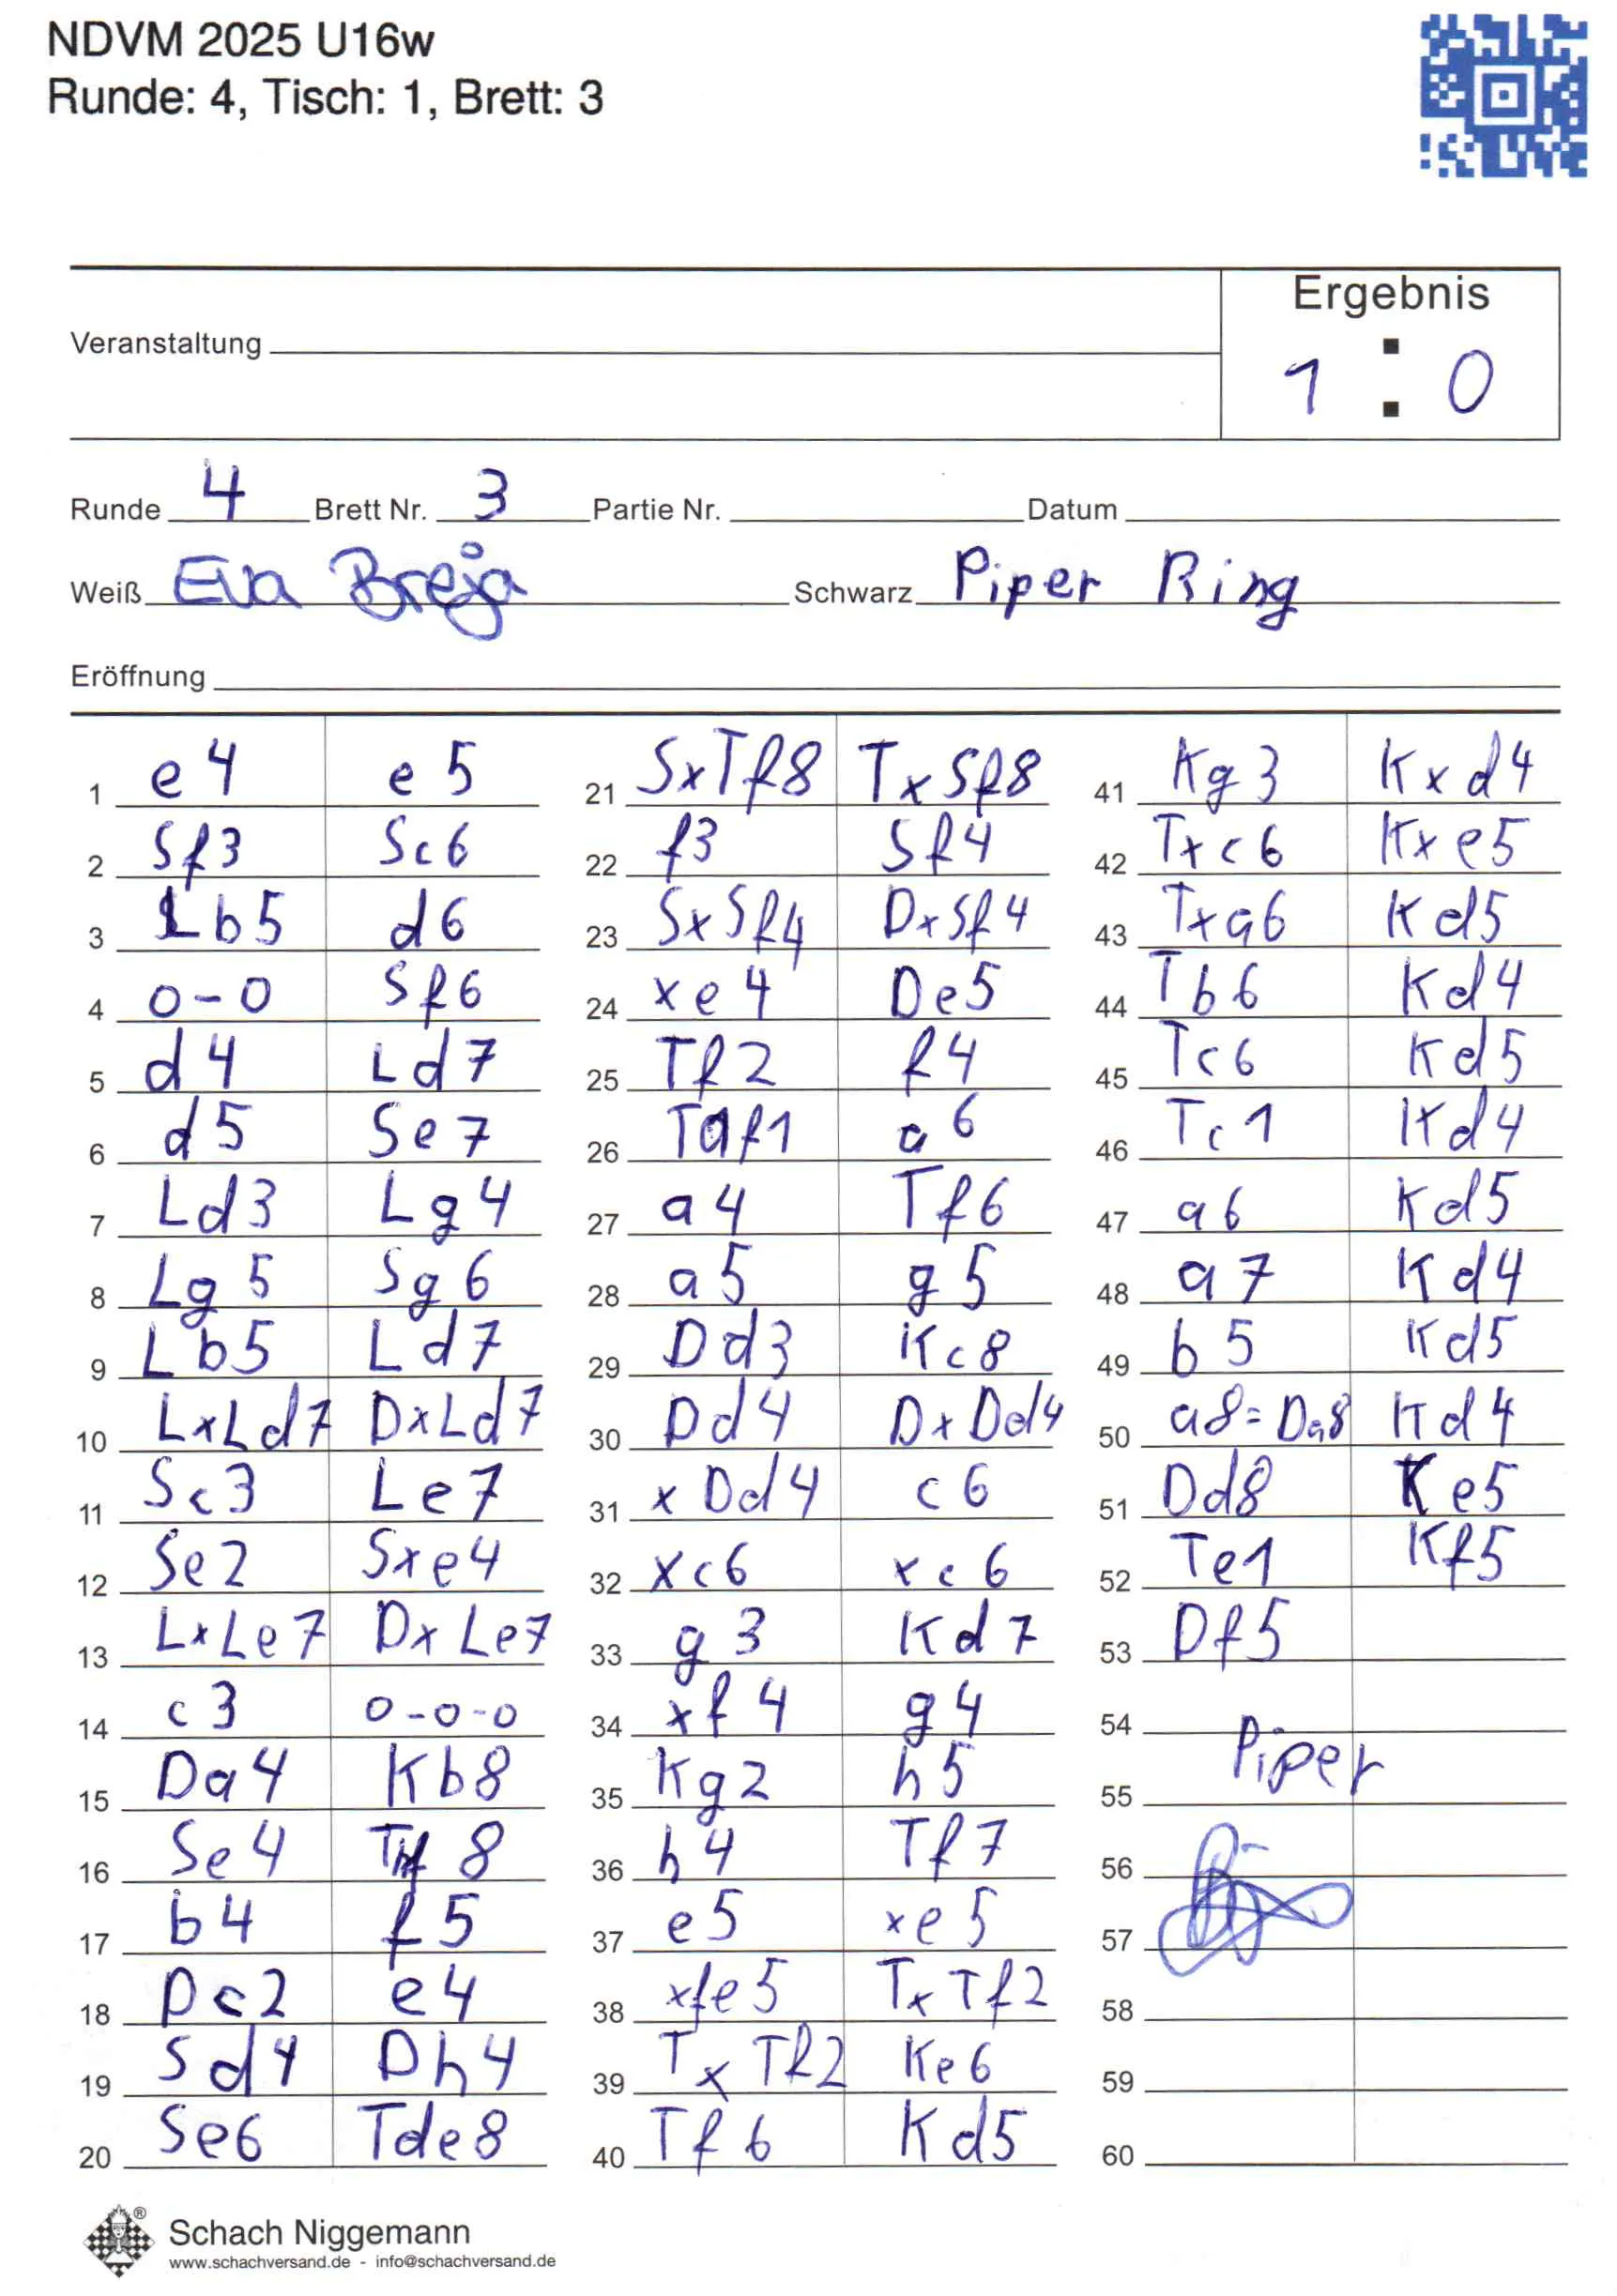 NDVM 2025 U16w
Runde: 4, Tisch: 1, Brett: 3
Ergebnis
Veranstaltung
1 : 0
Runde 4 Brett Nr. 3 Partie Nr. Datum
Weiß Eva Breja Schwarz Piper Ring
Eröffnung
1 e4 e5
2 Sf3 Sc6
3 Lb5 d6
4 0-0 Sf6
5 d4 Ld7
6 d5 Se7
7 Ld3 Lg4
8 Lg5 Sg6
9 Lb5 Ld7
10 LxLd7 DxLd7
11 Sc3 Le7
12 Se2 Sxe4
13 LxLe7 DxLe7
14 c3 0-0-0
15 Da4 Kb8
16 Se4 Thf8
17 b4 f5
18 Dc2 e4
19 Sd4 Dh4
20 Se6 Tde8
21 SxTf8 TxSf8
22 f3 Sf4
23 SxSf4 DxSf4
24 xe4 De5
25 Tf2 f4
26 Taf1 a6
27 a4 Tf6
28 a5 g5
29 Dd3 Kc8
30 Dd4 DxDd4
31 xDd4 c6
32 xc6 xc6
33 g3 Kd7
34 xf4 g4
35 Kg2 h5
36 h4 Tf7
37 e5 xe5
38 xfe5 TxTf2
39 TxTf2 Ke6
40 Tf6 Kd5
41 Kg3 Kxd4
42 Txc6 Kxe5
43 Txa6 Kd5
44 Tb6 Kd4
45 Tc6 Kd5
46 Tc1 Kd4
47 a6 Kd5
48 a7 Kd4
49 b5 Kd5
50 a8=Da8 Kd4
51 Dd8 Ke5
52 Te1 Kf5
53 Df5
54
Piper
55
56
57
58
59
60
Schach Niggemann
www.schachversand.de - info@schachversand.de